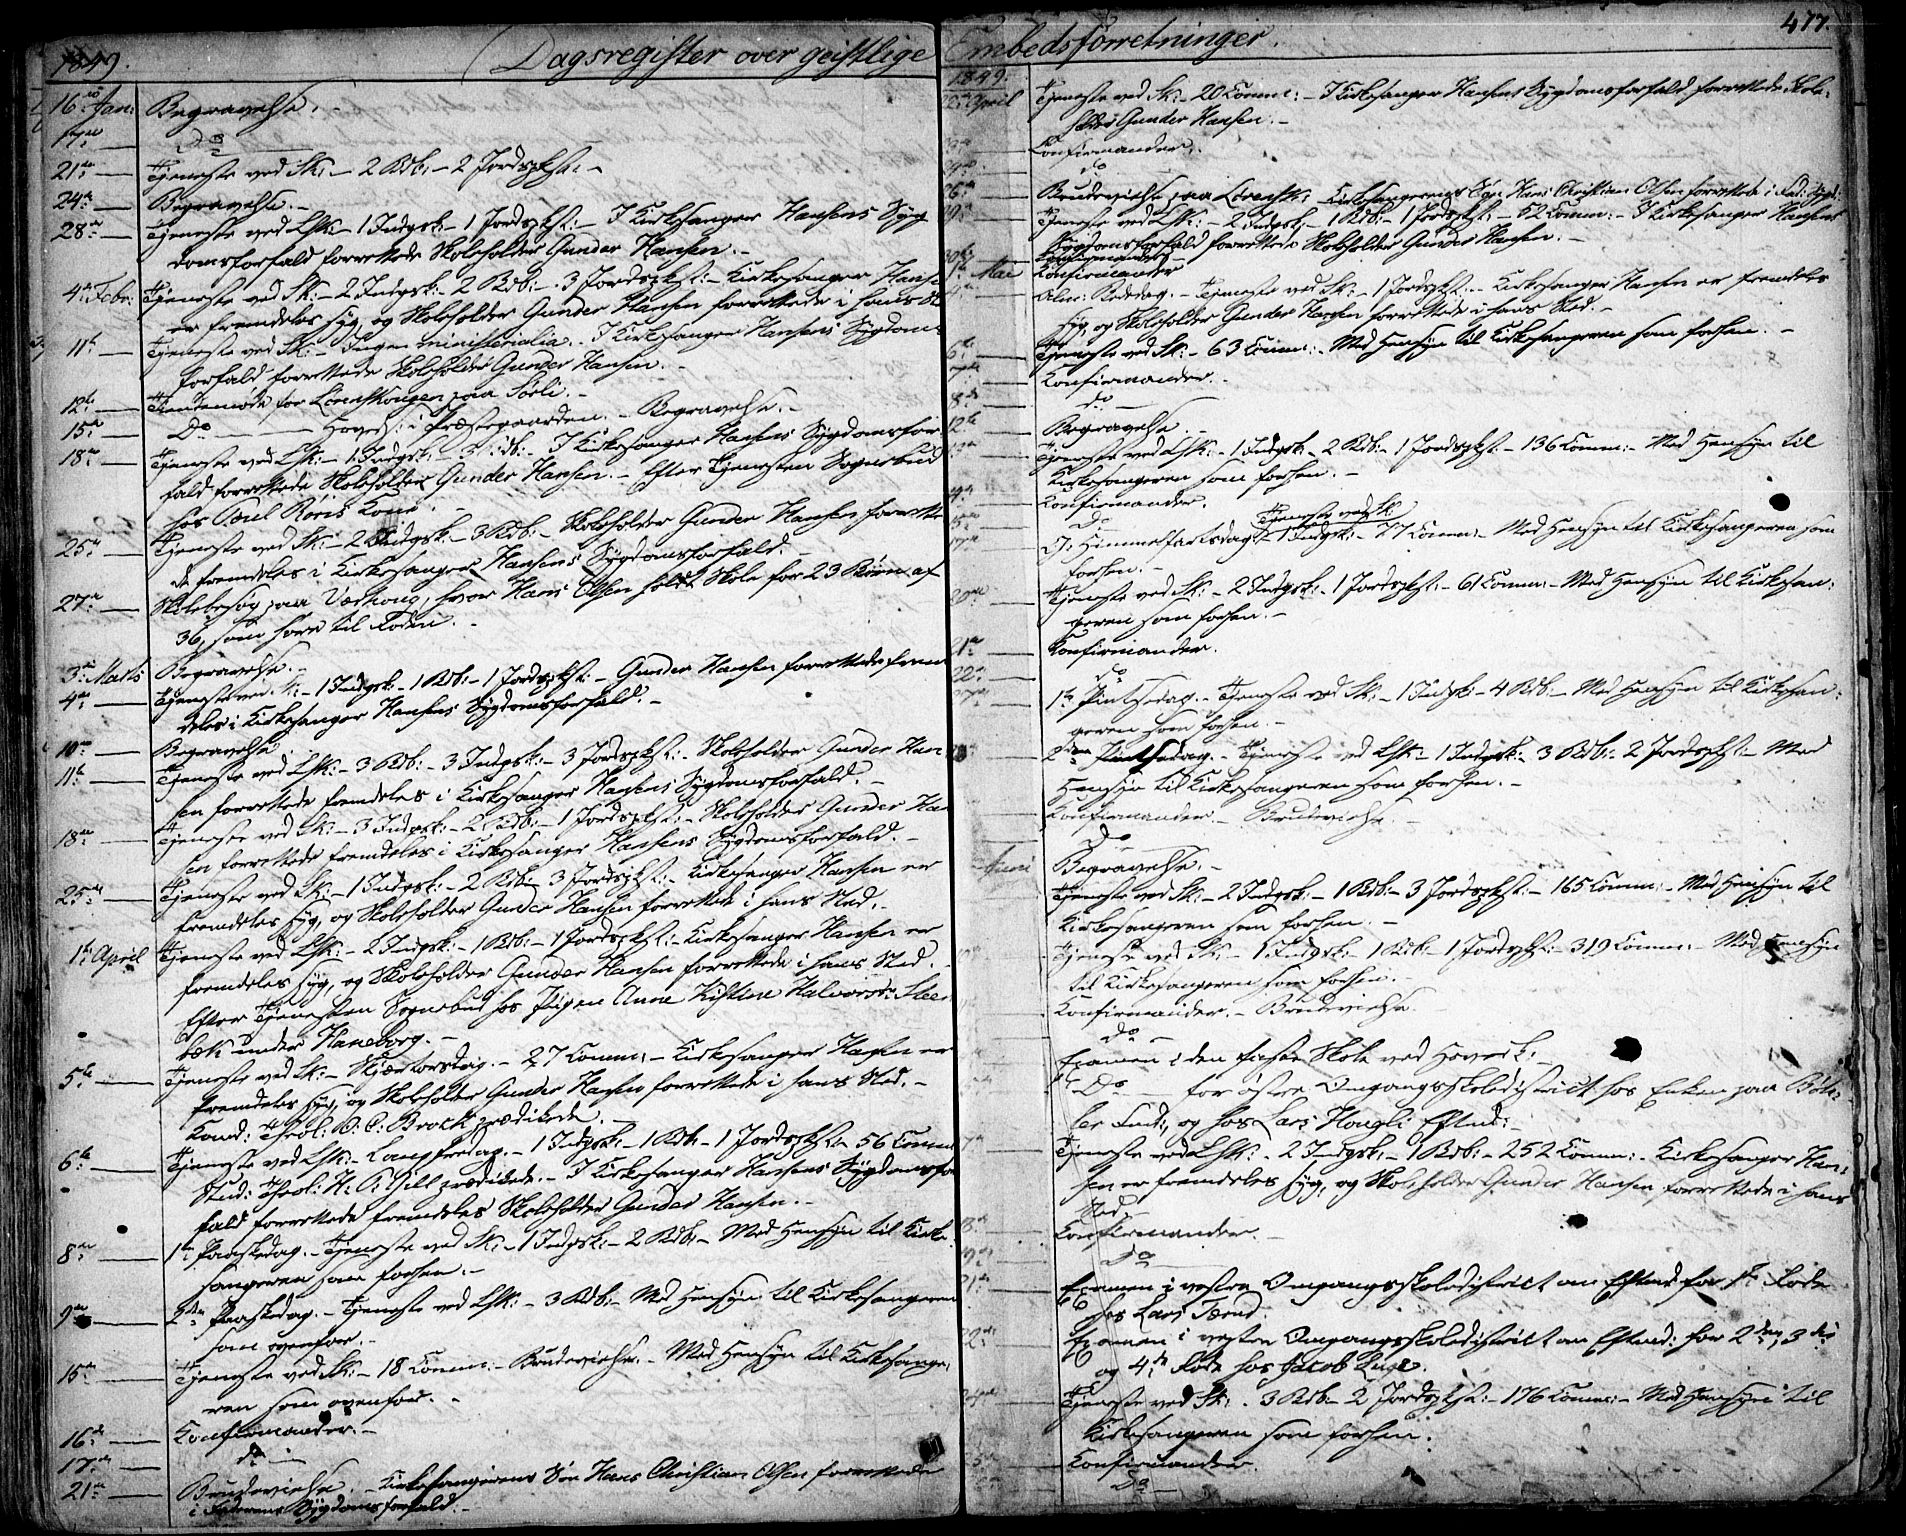 Dagsregister over geistlige Embedsforretninger.
477.
1849.
16de Jan: Begravelse.
17de — Do
21de — Tjeneste ved Sk: – 2 Rdb: – 2 Jordspkst: –
24de — Begravelse. –
28de — Tjeneste ved LSk: – 1 Indgsk: – 1 Jordspkst: – I Kirkesanger Hansens Syg
domsforfald forrettede Skoleholder Gunder Hansen. –
4de Febr: Tjeneste ved Sk: – 2 Indgsk: – 2 Rdb: – 3 Jordspkst: – Kirkesanger Hansen
er fremdeles syg, og Skoleholder Gunder Hansen forrettede i hans
11te — Tjeneste ved Sk: – Ingen ministerialia. – I Kirkesanger Hansens Sygdoms
forfald forrettede Skoleholder Gunder Hansen. –
12te — for Lørenskougen paa Sørli. –
15de — Do — Hoveds: i Præstegaarden. – Begravelse. –
18de — Tjeneste ved LSk: – 1 Indgsk: – 3 Rdb: – I Kirkesanger Hansens Sygdomsfor
fald forrettede Skoleholder Gunder Hansen. – Efter Tjenesten Sognebud
hos Poul Kone. –
25de — Tjeneste ved Sk: – 2 Indgsk: – 3 Rdb: – Skoleholder Gunder Hansen forrette
de fremdeles i Kirkesanger Hansens Sygdomsforfald. –
27de — Skolebesøg paa hvor Hans Olsen holdt Skole for 23 Børn af
36, som høre til Roden. –
3die Marts Begravelse. –
4de — Tjeneste ved Sk: – 1 Indgsk: – 1 Rdb: – 1 Jordspkst: – Gunder Hansen forrettede frem
deles i Kirkesanger Hansens Sygdomsforfald. –
10de — Begravelse
11te — Tjeneste ved LSk: – 3 Rdb: – 3 Indgsk: – 3 Jordspkst: – Skoleholder Gunder Han
sen forrettede fremdeles i Kirkesanger Hansens Sygdomsforfald. –
18de — Tjeneste ved Sk: – 3 Indgsk: – 2 Rdb: – 1 Jordspkst: – Skoleholder Gunder Han
sen forrettede fremdeles i Kirkesanger Hansens Sygdomsforfald. –
25de — Tjeneste ved Sk: – 1 Indgsk: – 2 Rdb: – 3 Jordspkst: – Kirkesanger Hansen er
fremdeles syg, og Skoleholder Gunder Hansen forrettede i hans Sted. –
1ste April Tjeneste ved LSk: – 2 Indgsk: – 1 Rdb: – 1 Jordspkst: – Kirkesanger Hansen er
fremdeles syg, og Skoleholder Gunder Hansen forrettede i hans Sted. –
Efter Tjenesten Sognebud hos Pigen Anne Kistine Halvorsdr
bæk under Haneborg. –
5te — Tjeneste ved Sk: – Skjærtorsdag. – 27 Comm: – Kirkesanger Hansen er
fremdeles syg, og Skoleholder Gunder Hansen forrettede i hans Sted. –
Cand: Theol: O: C: Brock prædikede. –
6te — Tjeneste ved LSk: – Langfredag. – 1 Indgsk: – 1 Rdb: – 1 Jordspkst: – 56 Comm:
Stud: Theol: prædikede. – I Kirkesanger Hansens Sygdomsfor
fald forrettede fremdeles Skoleholder Gunder Hansen. –
8de — 1ste Paaskedag. – Tjeneste ved Sk: – 1 Indgsk: – 2 Rdb: – Med Hensyn til Kirke
sangeren som forhen. –
9de — 2den Paaskedag. – Tjeneste ved LSk: – 3 Rdb: – Med Hensyn til Kirkesangeren
som ovenfor. –
15de — Tjeneste ved Sk: – 18 Comm: – Brudevielse. – Med Hensyn til Kirkesange
ren som ovenfor. –
16de — Confirmander. –
17de — do –
21de — Brudevielse. – Kirkesangerens Søn Hans Christian Olsen forrettede
i Faderens Sygdomsforfald. –
1849.
22de April Tjeneste ved Sk: – 20 Comm: – I Kirkesanger Hansens Sygdomsforfald forrettede Skole
holder Gunder Hansen. –
Confirmander.
do
26de Brudevielse paa Lørensk: Kirkesangerens Søn Hans Christian Olsen forrettede i Fad: Sygd:
Tjeneste ved LSk: – 2 Indgsk: – 1 Rdb: – 1 Jordspkst: – 52 Comm: – I Kirkesanger Hansens
Sygdomsforfald forrettede Skoleholder Gunder Hansen. –
30te Confirmander –
1ste Mai Confirmander
Alm: Bededag. – Tjeneste ved Sk: – 1 Jordspkst: – Kirkesanger Hansen er fremdeles
syg, og Skoleholder Gunder Hansen forrettede i hans Sted. –
6te — Tjeneste ved Sk: – 63 Comm: – Med Hensyn til Kirkesangeren som forhen. –
7de — Confirmander. –
8de — do –
12te — Begravelse. –
Tjeneste ved LSk: – 1 Indgsk: – 2 Rdb: – 1 Jordspkst: – 136 Comm: – Med Hensyn til
Kirkesangeren som forhen. –
Confirmander.
Do Tjeneste ved Sk:
17de — Ch: Himmelfartsdag: – 1 Indgsk: – 77 Comm: – Med Hensyn til Kirkesangeren som
forhen. –
20de — Tjeneste ved Sk: – 2 Indgsk: – 1 Jordspkst: – 61 Comm: – Med Hensyn til Kirkesan:
geren som forhen. –
21de — Confirmander.
22de — do
27de — 1ste Pintsedag. – Tjeneste ved Sk: – 1 Indgsk: – 4 Rdb: – Med Hensyn til Kirkesan:
geren som forhen. –
2den Pintsedag. – Tjeneste ved LSk: – 1 Indgsk: – 3 Rdb: – 2 Jordspkst: – Med
Hensyn til Kirkesangeren som forhen. –
Confirmander. – Brudevielse. –
Do
Juni Begravelse. –
Tjeneste ved Sk: – 2 Indgsk: – 1 Rdb: – 3 Jordspkst: – 165 Comm: – Med Hensyn til
Kirkesangeren som forhen. –
Tjeneste ved Sk: – 1 Indgsk: – 1 Rdb: – 1 Jordspkst: – 319 Comm: – Med Hensyn
til Kirkesangeren som forhen.
Confirmander. – Brudevielse.
do –
Examen i den faste Skole ved Hovedk: –
Do — for østre Omgangsskoledistrict hos Enken paa
og hos Lars Hougli Eftmd: –
Tjeneste ved LSk: – 2 Indgsk: – 1 Rdb: – 252 Comm: – Kirkesanger Han:
sen er fremdeles syg, og Skoleholder Gunder Hansen forrettede i hans
Sted. –
18de — Confirmander. –
Do
21de — Examen i vestre Omgangsskoledistrict om Eftmd for 1ste Rode
hos Lars
22de — Examen i vestre Omgangsskoledistrict om Eftmd: for 2den, 3die
og 4de Rode hos Jacob
Tjeneste ved Sk: – 3 Rdb: – 2 Jordspkst: – 176 Comm: – Med Hensyn til
Kirkesangeren som forhen.
Confirmander.
Do –